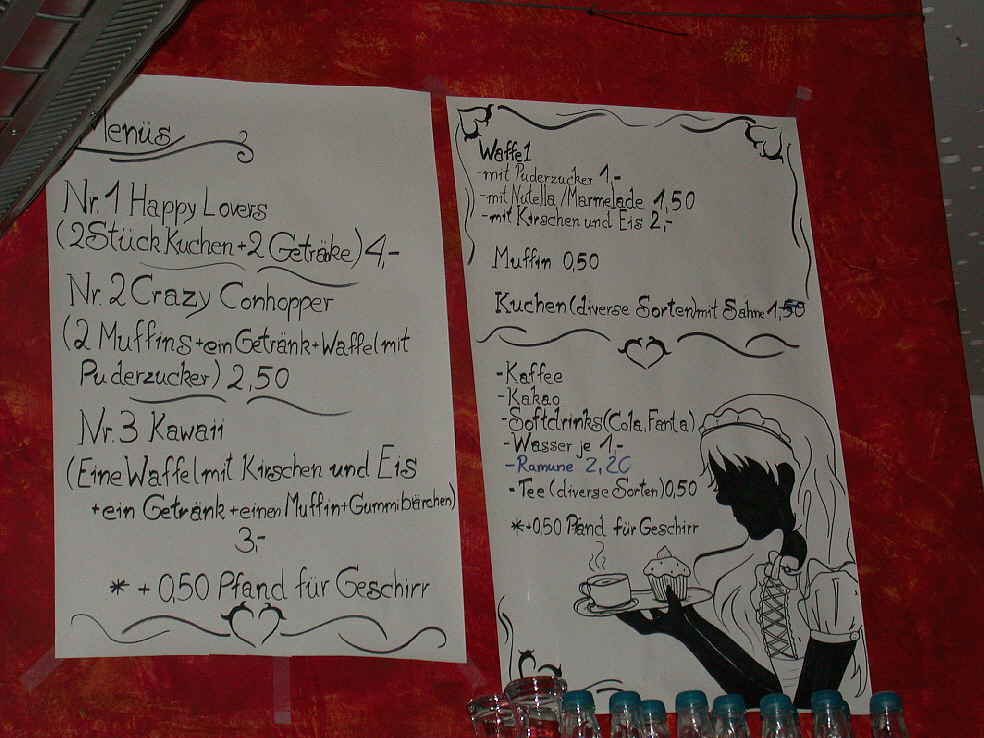 Menüs
Nr. 1 Happy Lovers
(2 Stück Kuchen + 2 Getränke) 4,-
Nr. 2 Crazy Conhopper
(2 Muffins + ein Getränk + Waffel mit
Puderzucker) 2,50
Nr. 3 Kawaii
(Eine Waffel mit Kirschen und Eis
+ ein Getränk + einen Muffin + Gummibärchen)
3,-
* + 0,50 Pfand für Geschirr
Waffel
- mit Puderzucker 1,-
- mit Nutella / Marmelade 1,50
- mit Kirschen und Eis 2,-
Muffin 0,50
Kuchen (diverse Sorten) mit Sahne 1,50
- Kaffee
- Kakao
- Softdrinks (Cola, Fanta)
- Wasser je 1,-
- Ramune 2,20
- Tee (diverse Sorten) 0,50
* + 0,50 Pfand für Geschirr